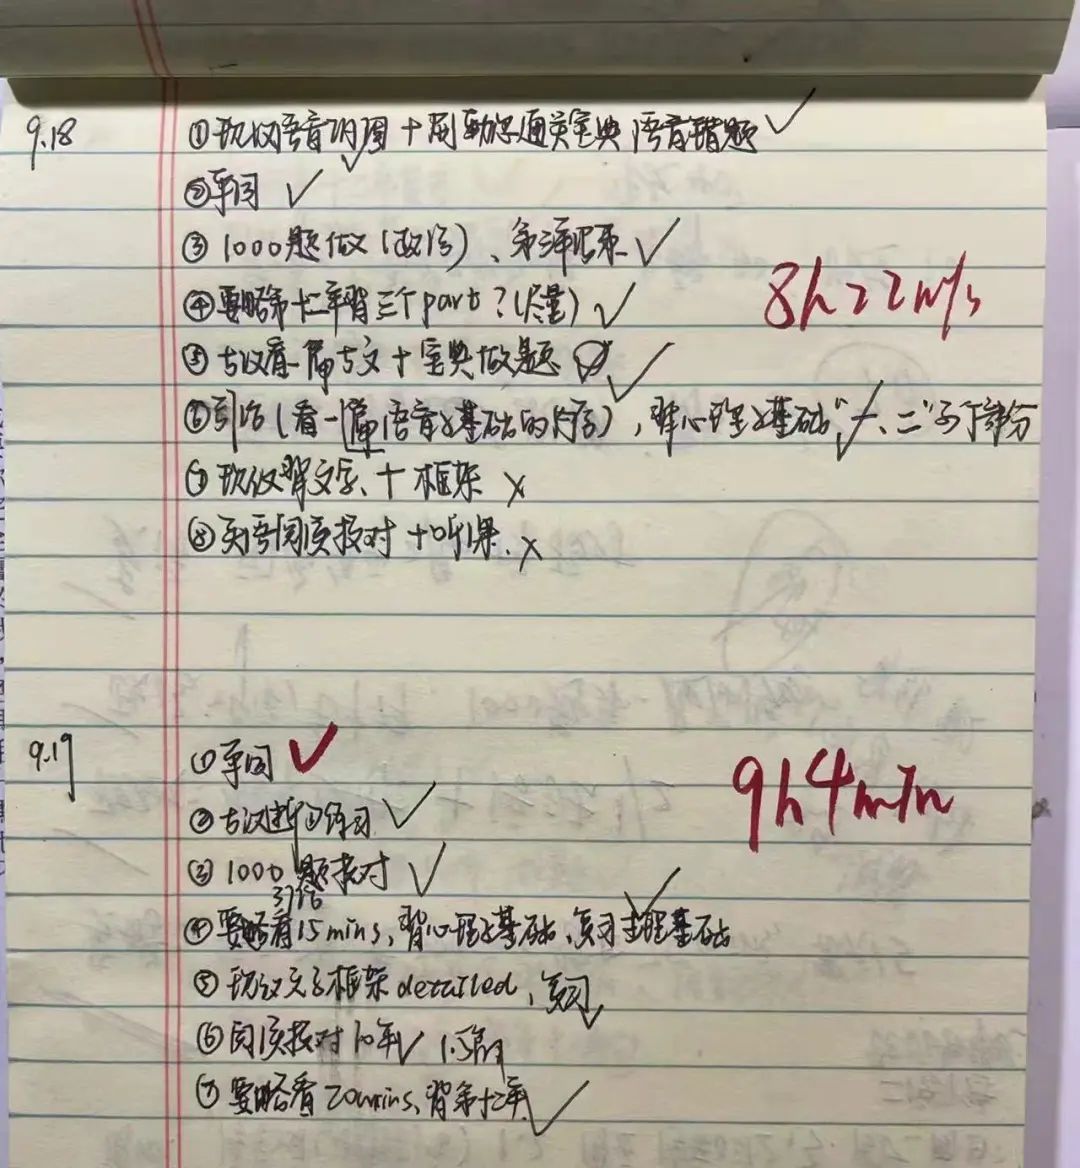 9.18
①现汉语音 + 刷 宝典 语音错题
②单词
③1000题做(政治)、第三章
④要略第十二章背三个part?(尽量)
⑤古汉看一篇古文+宝典做题
⑥引论(看一篇语音学基础的),背心理学基础"一、二"
⑦现汉背文字、+框架
⑧英语阅读核对+听课
8h22min
9.19
①单词
②古汉断句练习
③1000题核对
引论
④要略看15mins,背心理学基础、复习生理基础
⑤现汉文字框架detailed,复习
⑥阅读核对10年 1.5篇
⑦要略看20mins,背第十二章
9h4min